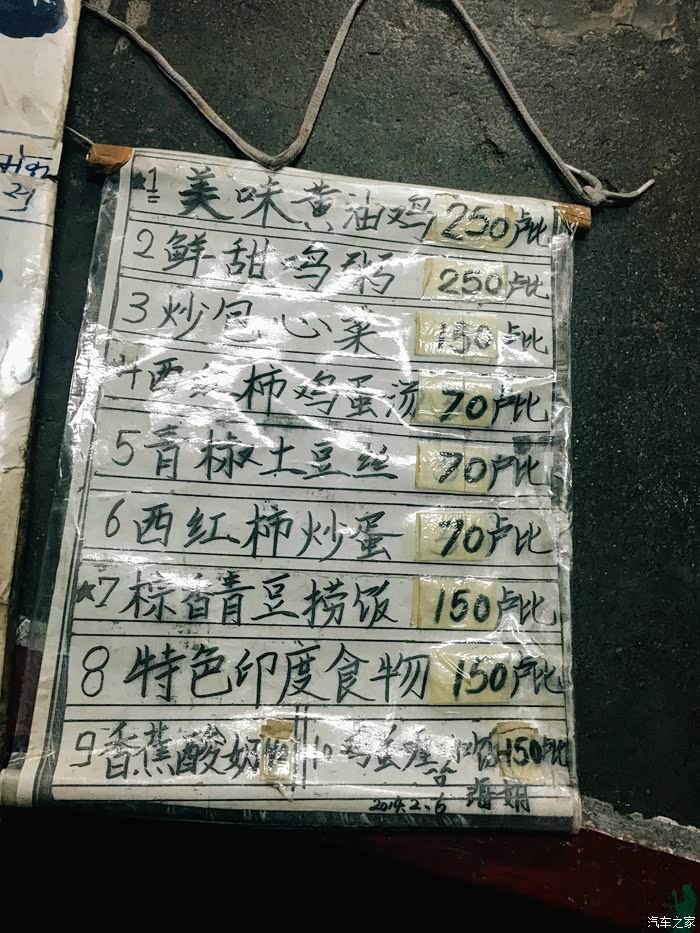 1 美味黄油鸡 250卢比
2 鲜甜鸡粥 250卢比
3 炒包心菜 150卢比
4 西红柿鸡蛋汤 70卢比
5 青椒土豆丝 70卢比
6 西红柿炒蛋 70卢比
★7 棕香青豆捞饭 150卢比
8 特色印度食物 150卢比
9 香蕉酸奶 10 鸡蛋 150卢比
2014.2.6
汽车之家